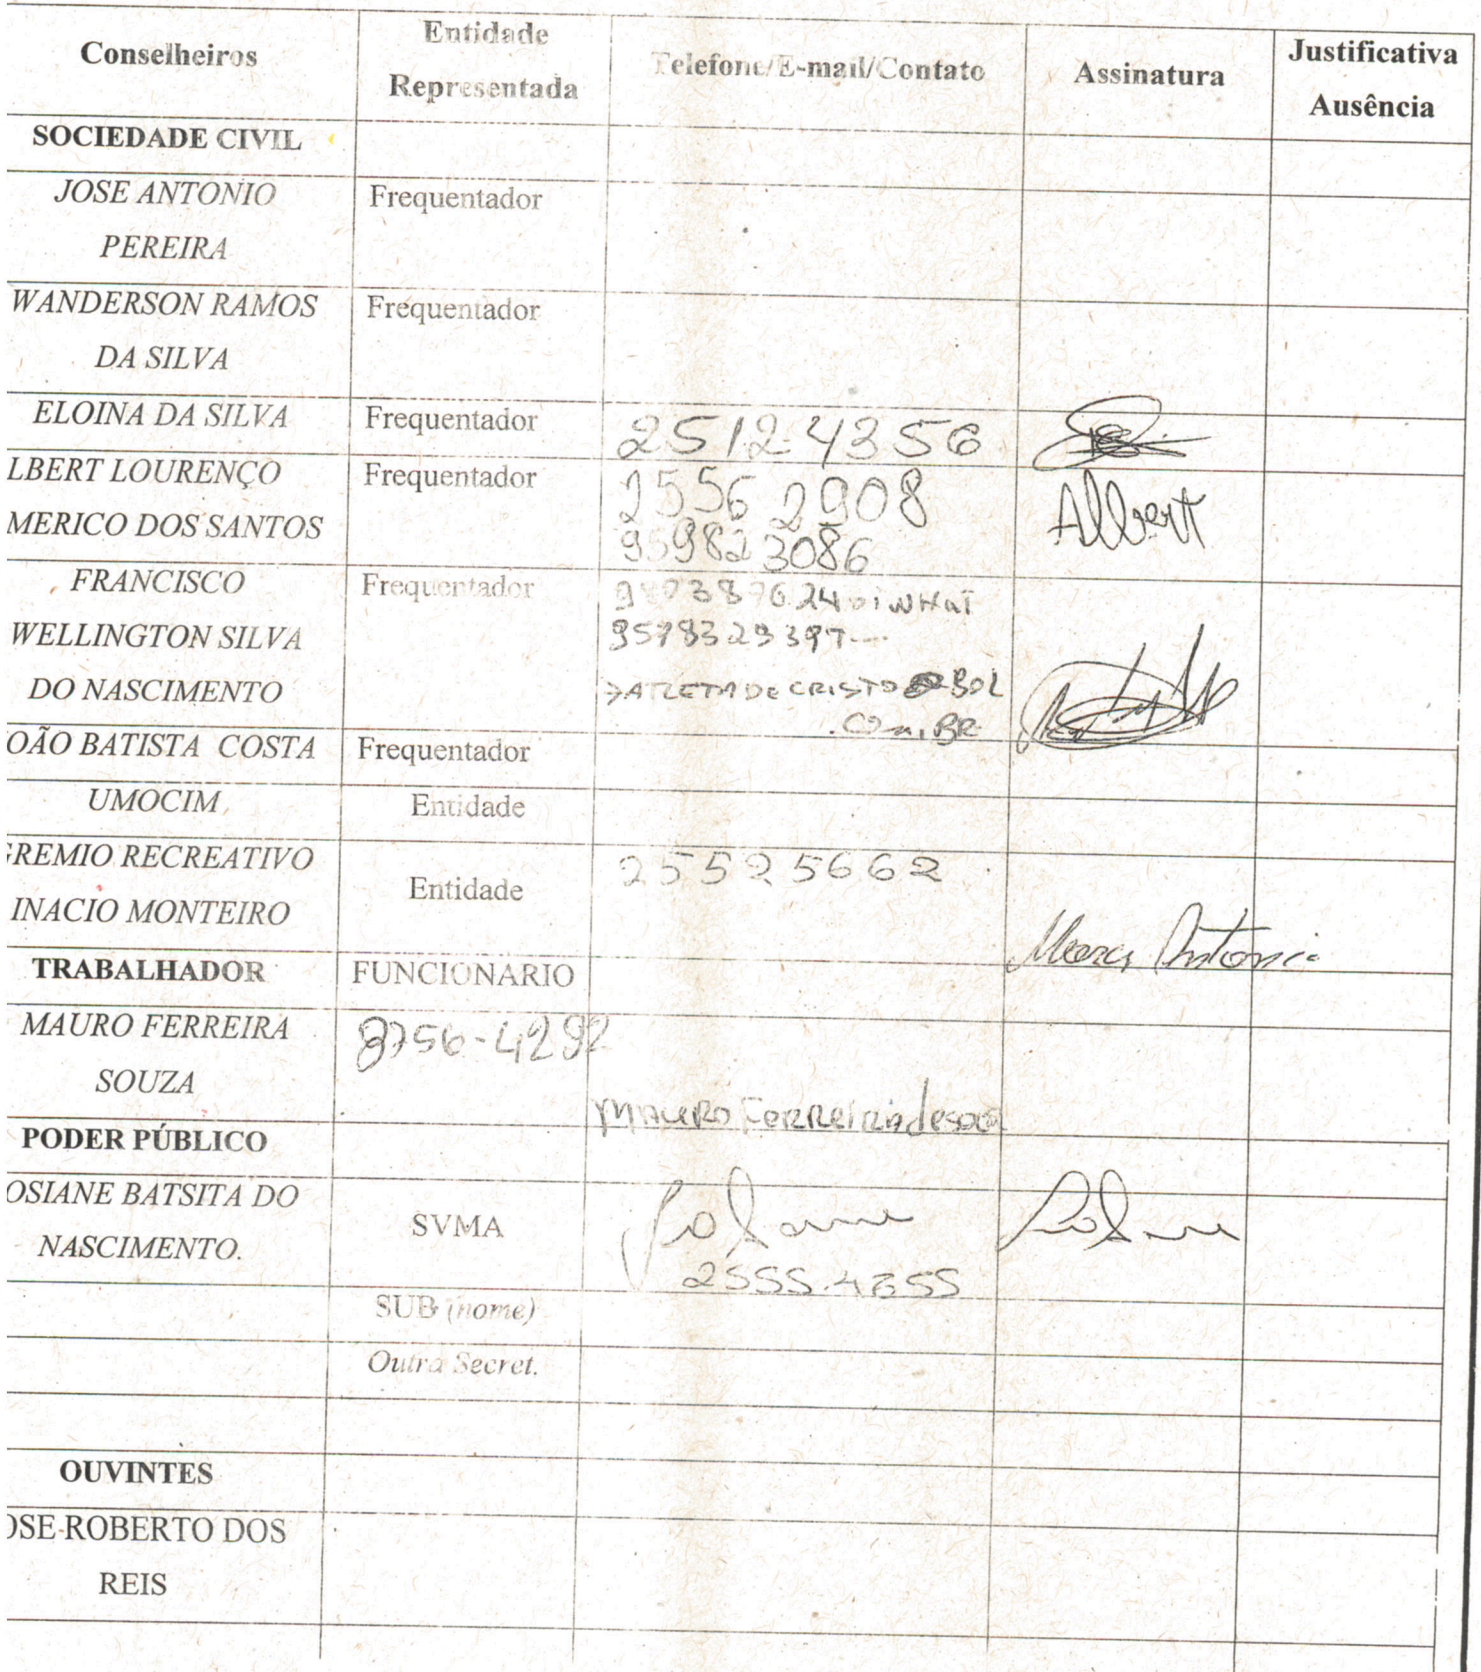 Conselheiros
Entidade
Representada
Telefone/E-mail/Contato
Assinatura
Justificativa
Ausência
SOCIEDADE CIVIL
JOSE ANTONIO
PEREIRA
Frequentador
WANDERSON RAMOS
DA SILVA
Frequentador
ELOINA DA SILVA
Frequentador
2512-4356
LBERT LOURENÇO
MERICO DOS SANTOS
Frequentador
2556 2908
959823086
Albert
FRANCISCO
WELLINGTON SILVA
DO NASCIMENTO
Frequentador
ATLETA DE CRISTO BOL
.COM.BR
OÃO BATISTA COSTA
Frequentador
UMOCIM
Entidade
REMIO RECREATIVO
INACIO MONTEIRO
Entidade
25525662
Antonio
TRABALHADOR
FUNCIONARIO
MAURO FERREIRA
SOUZA
8756-4292
MAURO Ferreira de
PODER PÚBLICO
OSIANE BATSITA DO
NASCIMENTO.
SVMA
2555-4355
SUB (nome)
Outra Secret.
OUVINTES
OSE ROBERTO DOS
REIS